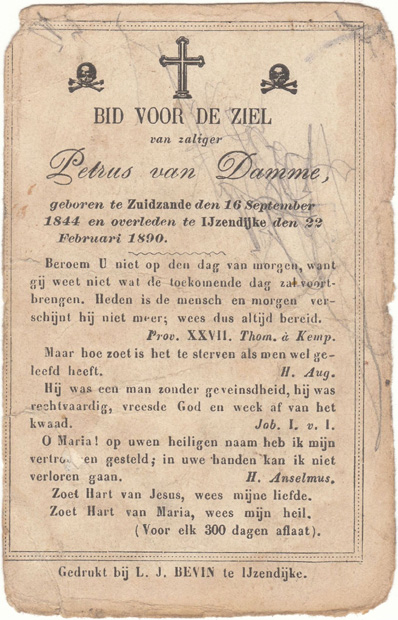 BID VOOR DE ZIEL
van zaliger
Petrus van Damme,
geboren te Zuidzande den 16 September
1844 en overleden te IJzendijke den 22
Februari 1890.
Beroem U niet op den dag van morgen, want
gij weet niet wat de toekomende dag zal voort-
brengen. Heden is de mensch en morgen ver-
schijnt hij niet meer; wees dus altijd bereid.
Prov. XXVII. Thom. à Kemp.
Maar hoe zoet is het te sterven als men wel ge-
leefd heeft. H. Aug.
Hij was een man zonder geveinsdheid, hij was
rechtvaardig, vreesde God en week af van het
kwaad. Job. I. v. 1.
O Maria! op uwen heiligen naam heb ik mijn
vertrouwen gesteld; in uwe handen kan ik niet
verloren gaan. H. Anselmus.
Zoet Hart van Jesus, wees mijne liefde.
Zoet Hart van Maria, wees mijn heil.
(Voor elk 300 dagen aflaat).
Gedrukt bij L. J. BEVIN te IJzendijke.